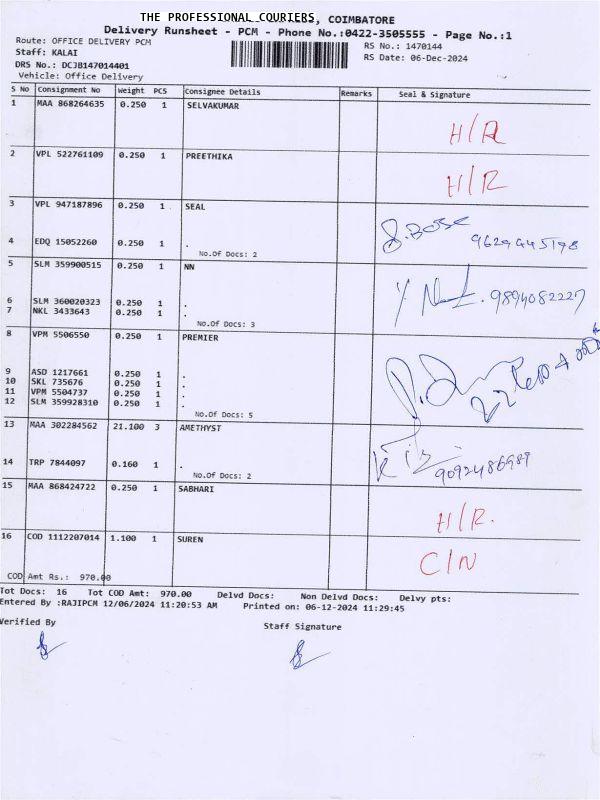 THE PROFESSIONAL COURIERS, COIMBATORE
Delivery Runsheet - PCM - Phone No.:0422-3505555 - Page No.:1
Route: OFFICE DELIVERY PCM
RS No.: 1470144
Staff: KALAI
RS Date: 06-Dec-2024
DRS No.: DCJB147014401
Vehicle: Office Delivery
S No Consignment No Weight PCS Consignee Details Remarks Seal & Signature
1 MAA 868264635 0.250 1 SELVAKUMAR
H/R
2 VPL 522761109 0.250 1 PREETHIKA
H/R
3 VPL 947187896 0.250 1 SEAL
J.BOSE
4 EDQ 15052260 0.250 1 .
No.Of Docs: 2
5 SLM 359900515 0.250 1 NN
9894082227
6 SLM 360020323 0.250 1 .
7 NKL 3433643 0.250 1 .
No.Of Docs: 3
8 VPM 5506550 0.250 1 PREMIER
9 ASD 1217661 0.250 1 .
10 SKL 735676 0.250 1 .
11 VPM 5504737 0.250 1 .
12 SLM 359928310 0.250 1 .
No.Of Docs: 5
13 MAA 302284562 21.100 3 AMETHYST
14 TRP 7844097 0.160 1 .
9092486989
No.Of Docs: 2
15 MAA 868424722 0.250 1 SABHARI
H/R.
16 COD 1112207014 1.100 1 SUREN
C/N
COD Amt Rs.: 970.00
Tot Docs: 16 Tot COD Amt: 970.00 Delvd Docs: Non Delvd Docs: Delvy pts:
Entered By :RAJIPCM 12/06/2024 11:20:53 AM Printed on: 06-12-2024 11:29:45
Verified By Staff Signature